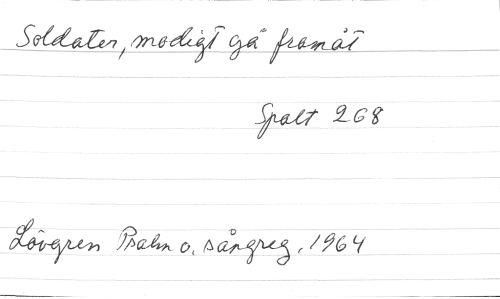 Soldater, modigt gå framåt
Spalt 268
Lövgren Psalm o. sångreg. 1964